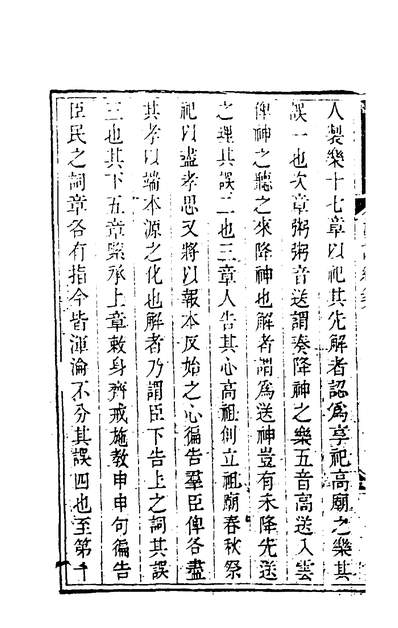 人製樂十七章以祀其先解者認爲享祀高廟之樂其
誤一也次章粥粥音送謂奏降神之樂五音高送入雲
俾神之聽之來降神也解者謂爲送神豈有未降先送
之理其誤二也三章人告其心高祖創立祖廟春秋祭
祀以盡孝思又將以報本反始之心徧告羣臣俾各盡
其孝以端本源之化也解者乃謂臣下告上之詞其誤
三也其下五章緊承上章敕身齊戒施教申申句徧告
臣民之詞章各有指今皆渾淪不分其誤四也至第十